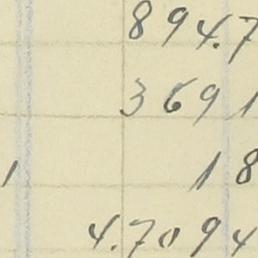 894.7
3691
1 18
4.7094